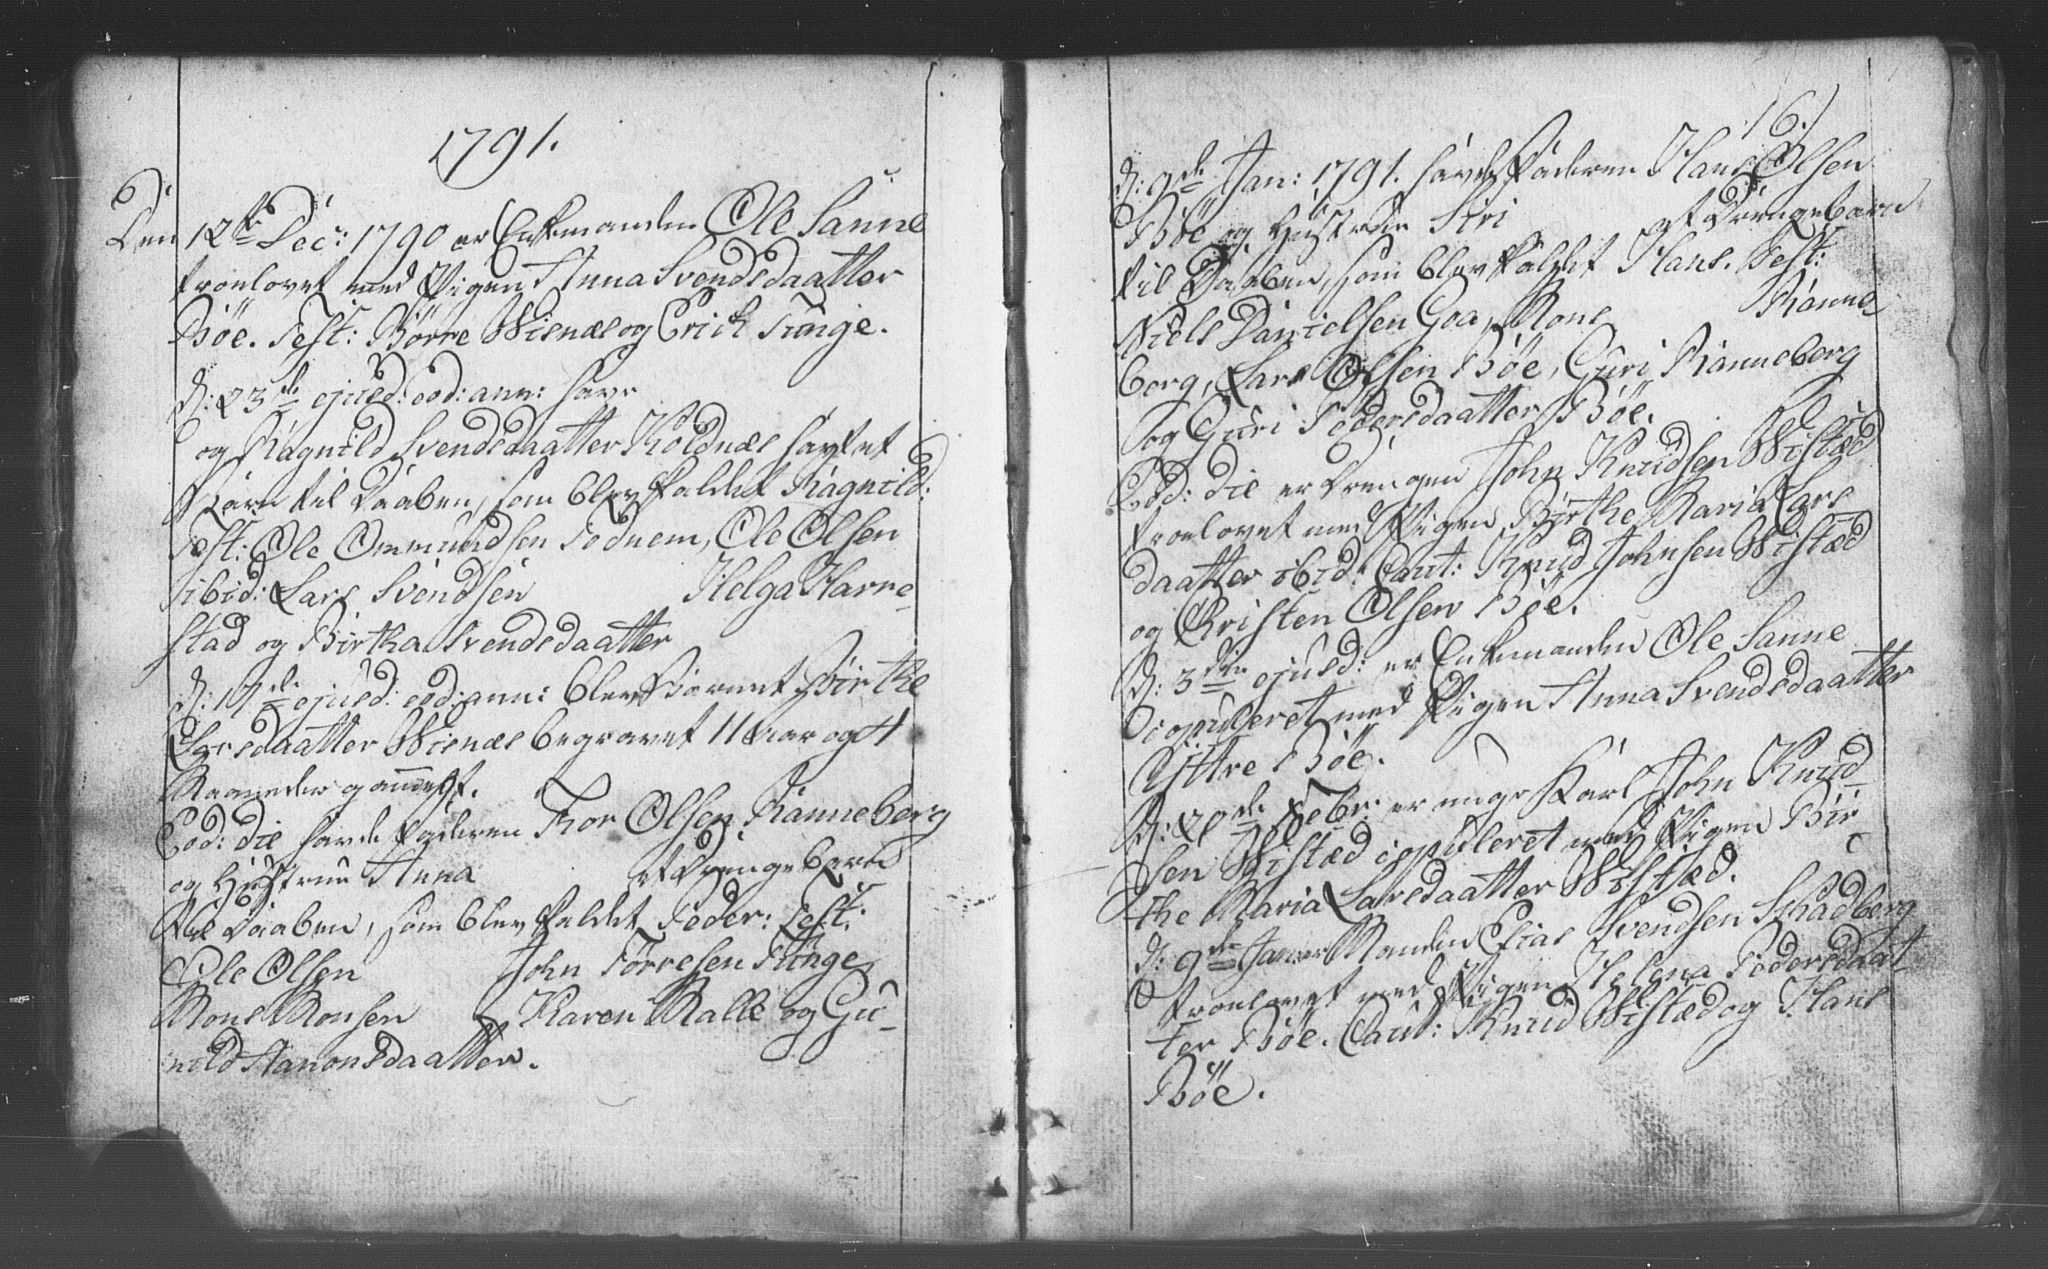 1791.
Den 12te Dec: 1790 er Enkemanden Ole Sanne
troelovet med Pigen Anna Svendsdaatter
Bøe. Test: Børre Wisnæs og Erich Tunge.
D: 23de ejusd: eod: ann: have
og Ragnild Svendsdaatter Koldnæs havt et
Barn til Daaben, som blev kaldet Ragnild:
Test: Ole Ommundsen Todnem, Ole Olsen
ibid: Lars Svendsen Helga Harre-
stad og Birtha Svendsdaatter
D: ejusd: eod: ann: blev Barnet Birthe
Larsdaatter Wisnæs begravet 11 aar og 4
Maaneder gammelt.
Eod: die havde Faderen Tor Olsen Ranneberg
og Hustrue Anna et Drengebarn
til Daaben, som blev kaldet Peder: Test:
Ole Olsen John Torresen Tunge,
Mons Monsen Karen Malle og Gu-
nild Hanonsdaatter.
16.)
D: 9de Jan: 1791. havde Faderen Hans Olsen
Bøe og Hustrue Siri et Drengebarn
til Daaben, som blev kaldet Hans. Test:
Niels Danielsen Goa, Mons Ranne
berg, Lars Olsen Bøe, Guri Ranneberg
og Guri Pedersdaatter Bøe.
Eod: die er Drengen John Knudsen Wistæd
troelovet med Pigen Birthe Maria Lars
daatter ibid: Caut: Knud Johnsen Wistæd
og Christen Olsen Bøe.
D: 3die ejusd: er Enkemanden Ole Sanne
copuleret med Pigen Anna Svendsdaatter
Yttre Bøe.
D: 20de Febr: er unge Karl John Knud
sen Wistæd copuleret med Pigen Bir
the Maria Larsdaatter Wistæd.
D: 9de Jan: er Manden Elias Svendsen Schadberg
troelovet med Pigen Helena Pedersdaat-
ter Bøe. Caut: Knud Wistæd og Hans
Bøe.